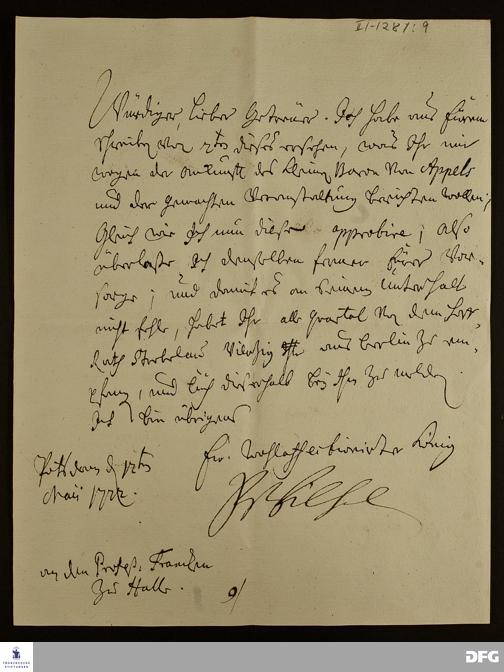 II-1-28/:9
Würdiger, lieber Getreuer. Ich habe aus Eurem
Schreiben vom dieses ersehen, was Ihr mir
wegen der Ankunft des kleinen Baron von Appels
und der gemachten Veranstaltung berichten wollen;
Gleich wie Ich nun diese approbire; also
überlaße Ich denselben ferner Eurer Vor-
sorge; und damit es an seinem Unterhalt
nicht fehle, habet Ihr alle Quartal von dem Hoff-
Rath Vierzig aus Berlin zu em-
pfangen, und Euch dieserhalb bey Ihm zu melden.
Ich bin übrigens
Ew. wohlaffectionirter König
Potsdam d 12ten
Maii 1722.
Fr Wilhelm
an den Profess: Francken
zu Halle.
9/
FRANCKESCHE
STIFTUNGEN
DFG